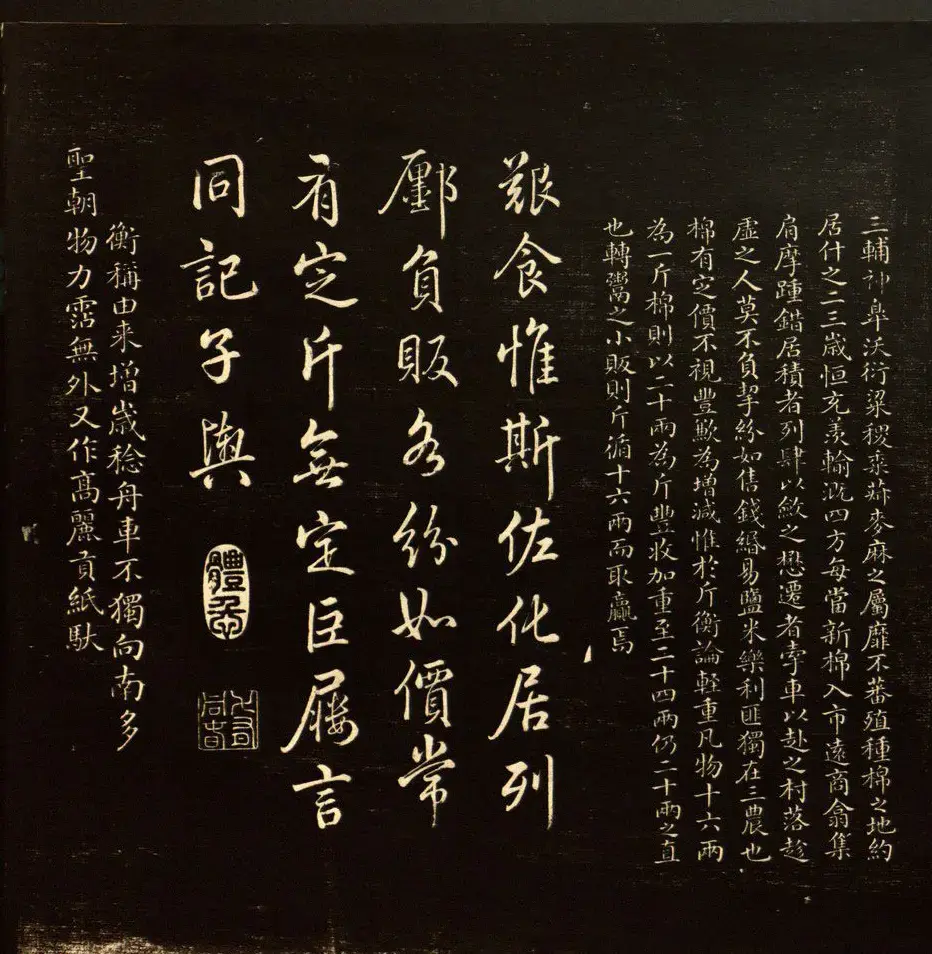 三輔神皋沃衍粱稷黍菽麥麻之屬靡不蕃殖種棉之地約
居什之二三歲恒充羨輸溉四方每當新棉入市遠商翕集
肩摩踵錯居積者列肆以斂之懋遷者牽車以赴之村落趁
虛之人莫不負挈紛如售錢緡易鹽米樂利匪獨在三農也
棉有定價不視豐歉為增減惟於斤衡論輕重凡物十六兩
為一斤棉則以二十兩為斤豐收加重至二十四兩仍二十兩之直
也轉鬻之小販則斤循十六兩而取贏焉
艱食惟斯佐化居列
鄽負販各紛如價常
有定斤無定巨屨言
同記子輿
體
衡稱由来增歲稔舟車不獨向南多
聖朝物力霑無外又作高麗貢紙馱